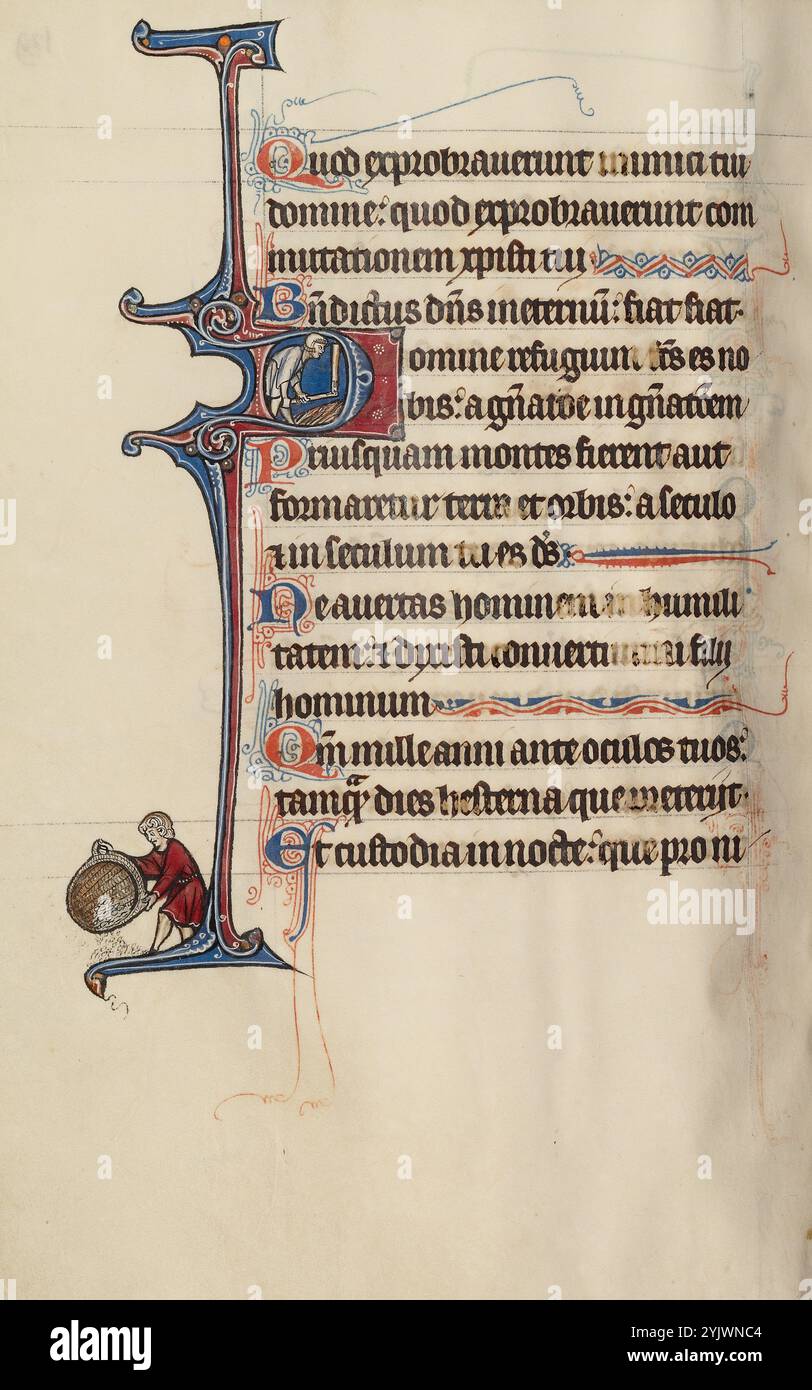 Quod exprobraverunt inimici tui
domine: quod exprobraverunt com
mutationem xpisti tui
Bn̄dictus dn̄s in eternū: fiat fiat.
Domine refugium es no
bis: a gn̄atōe in gn̄atōem
Priusquam montes fierent aut
formaretur terra et orbis: a seculo
⁊ in seculum tu es ds̄
Ne avertas hominem in humili
tatem: ⁊ dixisti convertimini filij
hominum
Qm̄ mille anni ante oculos tuos:
tamqᵃ dies hesterna que preterijt.
Et custodia in nocte: que pro ni
alamy
Image ID: 2YJWNC4
www.alamy.com